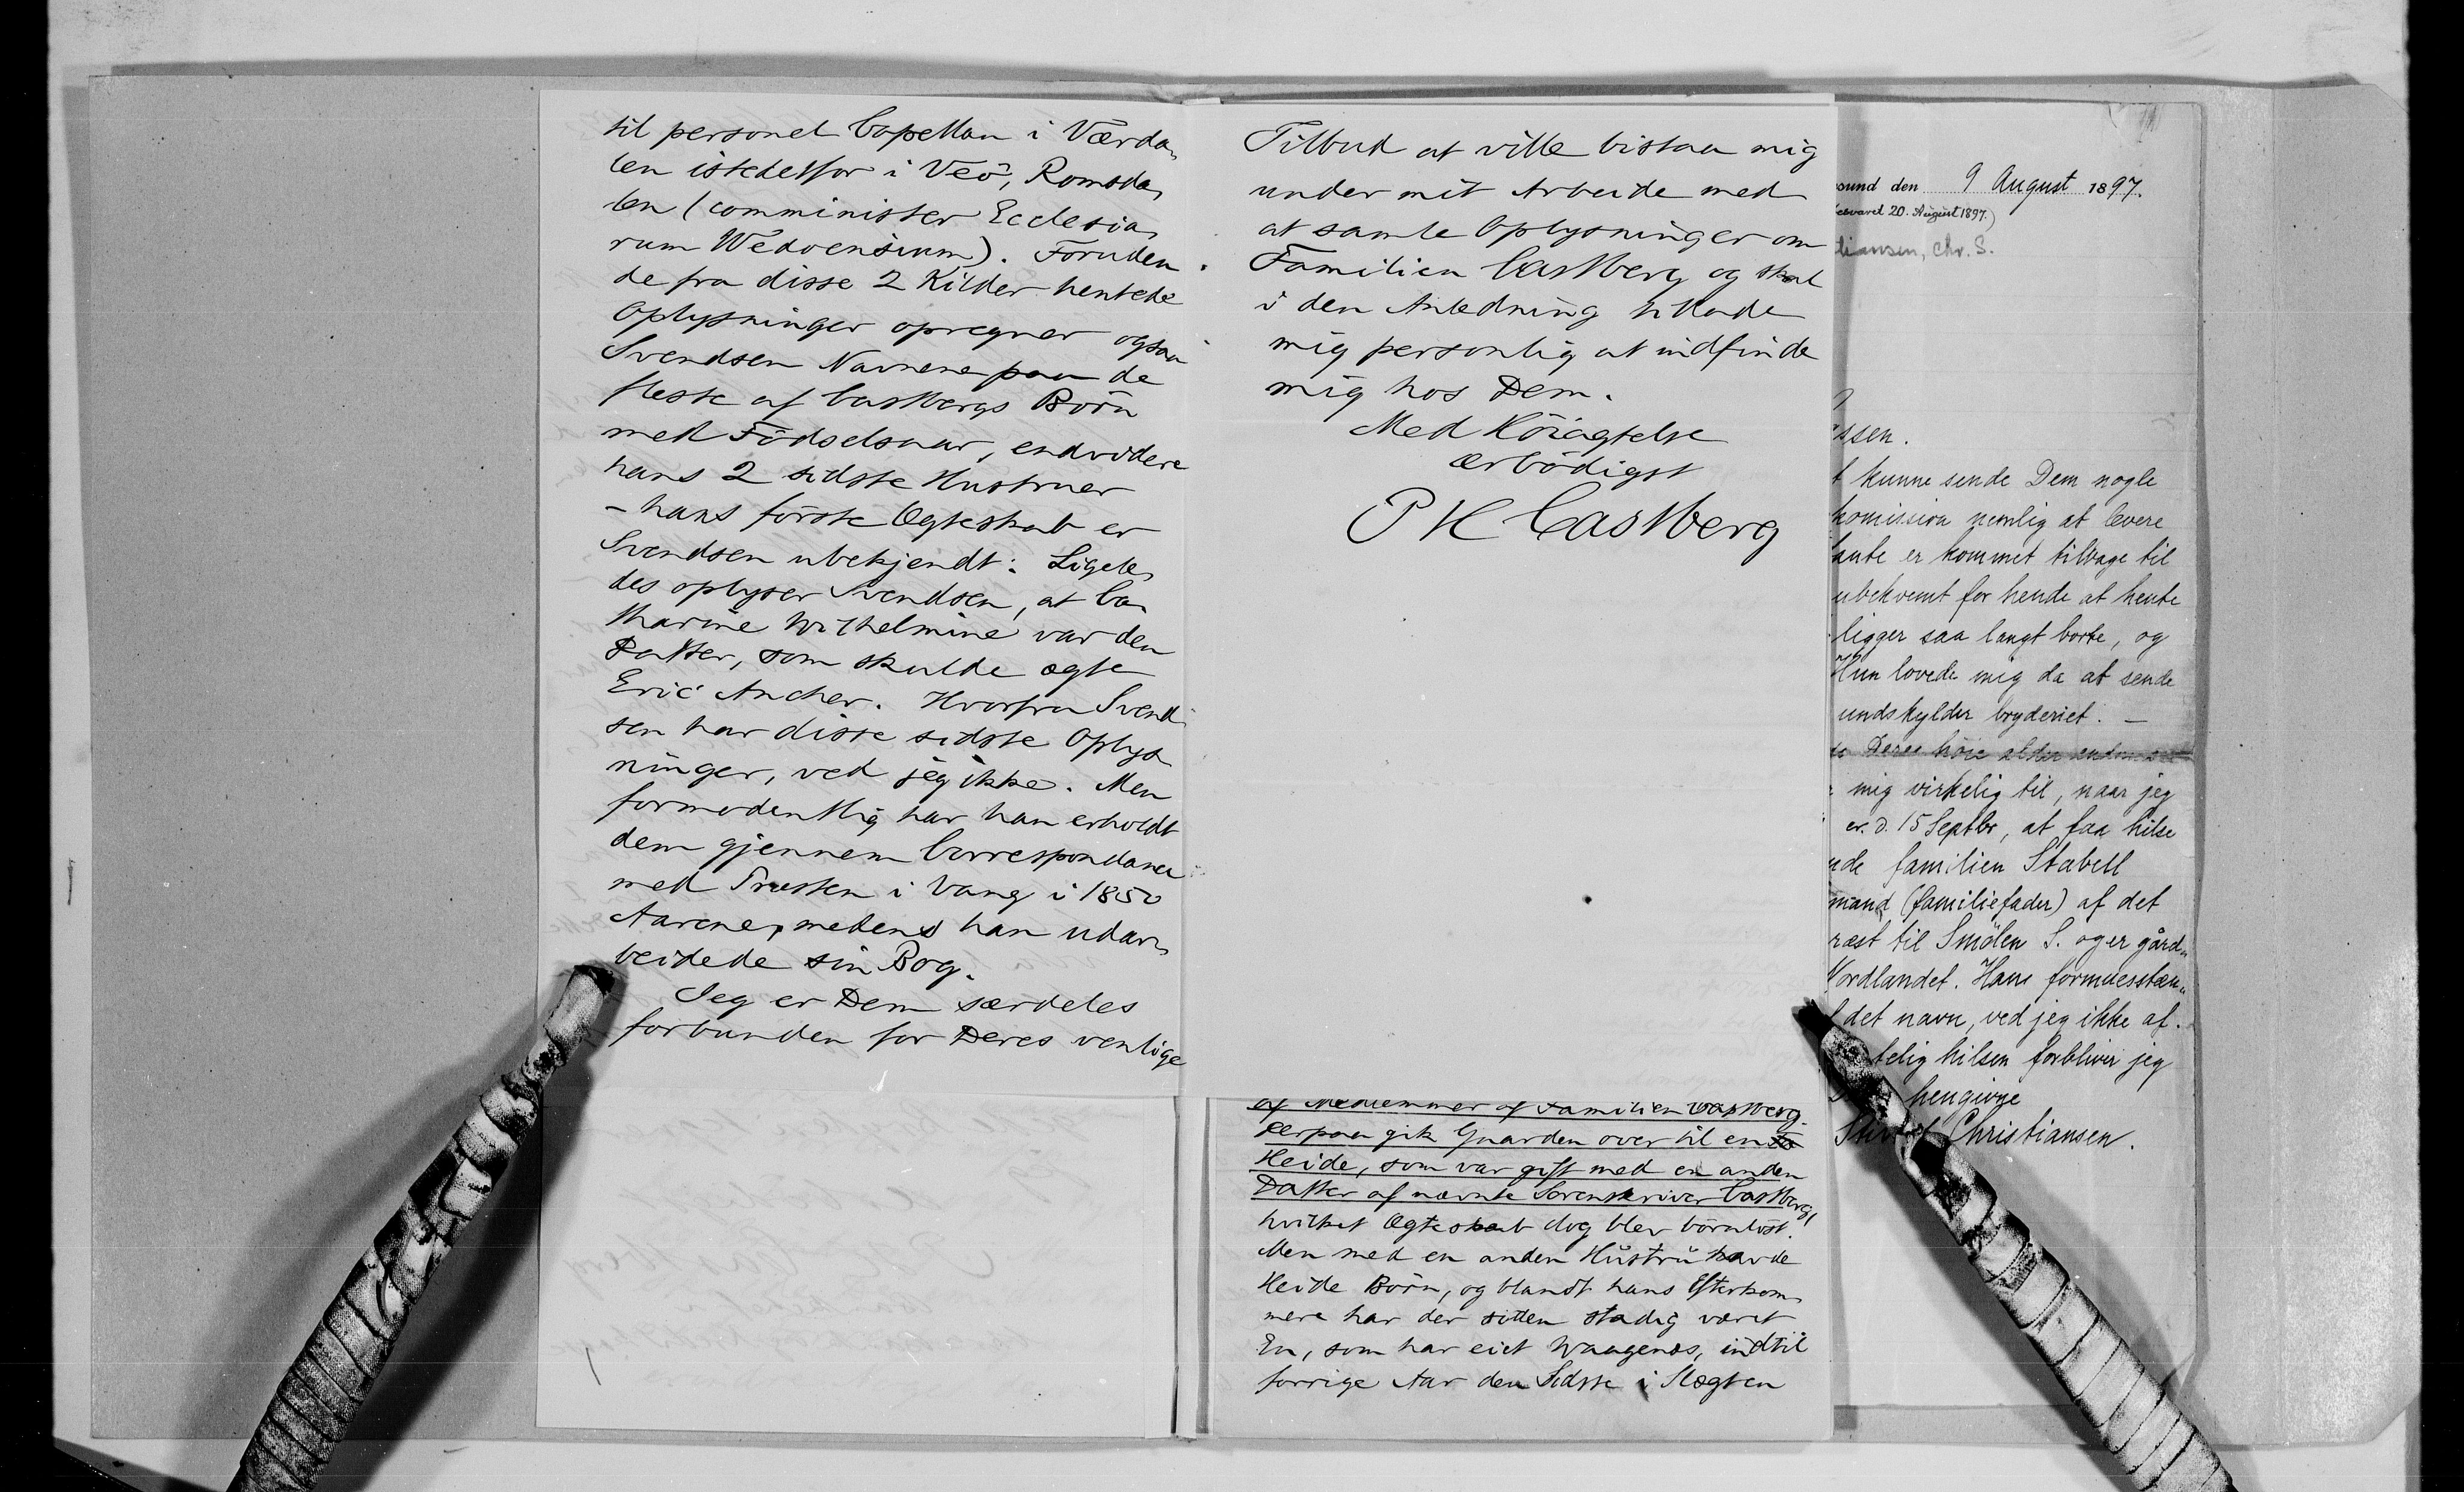 til personel Capellan i Værda-
len istedetfor i Veö, Romsda-
len (comminister Ecclesia-
rum Wedoensium). Foruden
de fra disse 2 Kilder hentede
Oplysninger opregner ogsaa
Svendsen Navnene paa de
fleste af Castbergs Börn
med Födselsaar, endvidere
hans 2 sidste Hustruer
- hans förste Ægteskab er
Svendsen ubekjendt. Ligele-
des oplyser Svendsen, at Ca-
tharine Wilhelmine var den
Datter, som skulde ægte
Eric Ancher. Hvorfra Svend-
sen har disse sidste Oplys-
ninger, ved jeg ikke. Men
formodentlig har han erholdt
dem gjennem Correspondance
med Præsten i Vang i 1850
Aarene, medens han udar-
beidede sin Bog.
Jeg er Dem særdeles
forbunden for Deres venlige
Tilbud at ville bistaa mig
under mit Arbeide med
at samle Oplysninger om
Familien Castberg og skal
i den Anledning tillade
mig personlig at indfinde
mig hos Dem.
Med Höiagtelse
ærbödigst
P H Castberg
af Medlemmer af Familien Castberg.
Derpaa gik Gaarden over til en
Heide, som var gift med en anden
Datter af nævnte Sorenskriver Castberg,
hvilket Ægteskab dog blev börnlöst.
Men med en anden Hustru havde
Heide Börn, og blandt hans Efterkom-
mere har der siden stadig været
En, som har eiet Waagenæs, indtil
forrige Aar den Sidste i Slægten
sund den 9 August 1897.
esvaret 20. August 1897.)
tiansen, Chr. S.
ssen.
t kunne sende Dem nogle
komission nemlig at levere
ante er kommet tilbage til
ubekvemt for hende at hente
ligger saa langt borte, og
Hun lovede mig da at sende
undskylder bryderiet. —
Deres höie alder
mig virkelig til, naar jeg
er d. 15 Septbr, at faa hilse
nde familien Stabell
mand (familiefader) af det
ræst til Smölen S. og er gård-
Nordlandet. Hans
det navn, ved jeg ikke af.
telig hilsen forbliver jeg
hengivne
Christiansen.